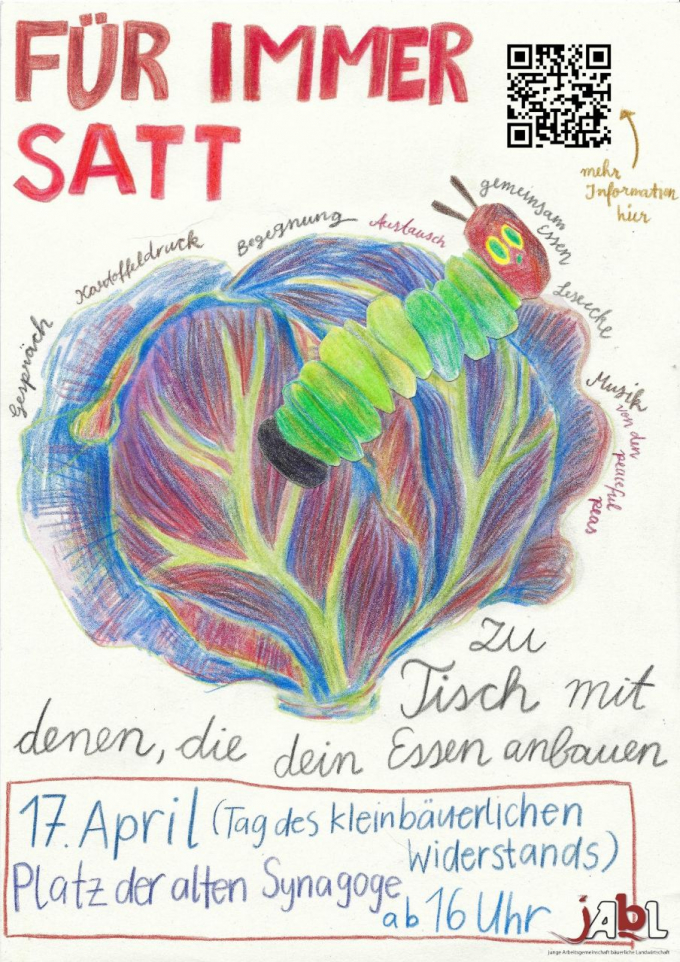 FÜR IMMER
SATT
mehr
Information
hier
Gespräch
Kartoffeldruck
Begegnung
Austausch
gemeinsam
Essen
Leseecke
Musik
von den
peaceful
peas
zu
Tisch mit
denen, die dein Essen anbauen
17. April (Tag des kleinbäuerlichen
Widerstands)
Platz der alten Synagoge
ab 16 Uhr
jAbL
junge Arbeitsgemeinschaft bäuerliche Landwirtschaft